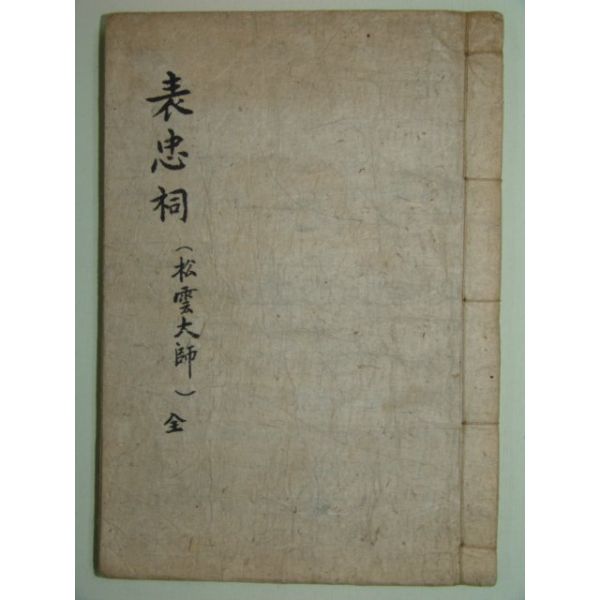 表忠祠(松雲大師)全